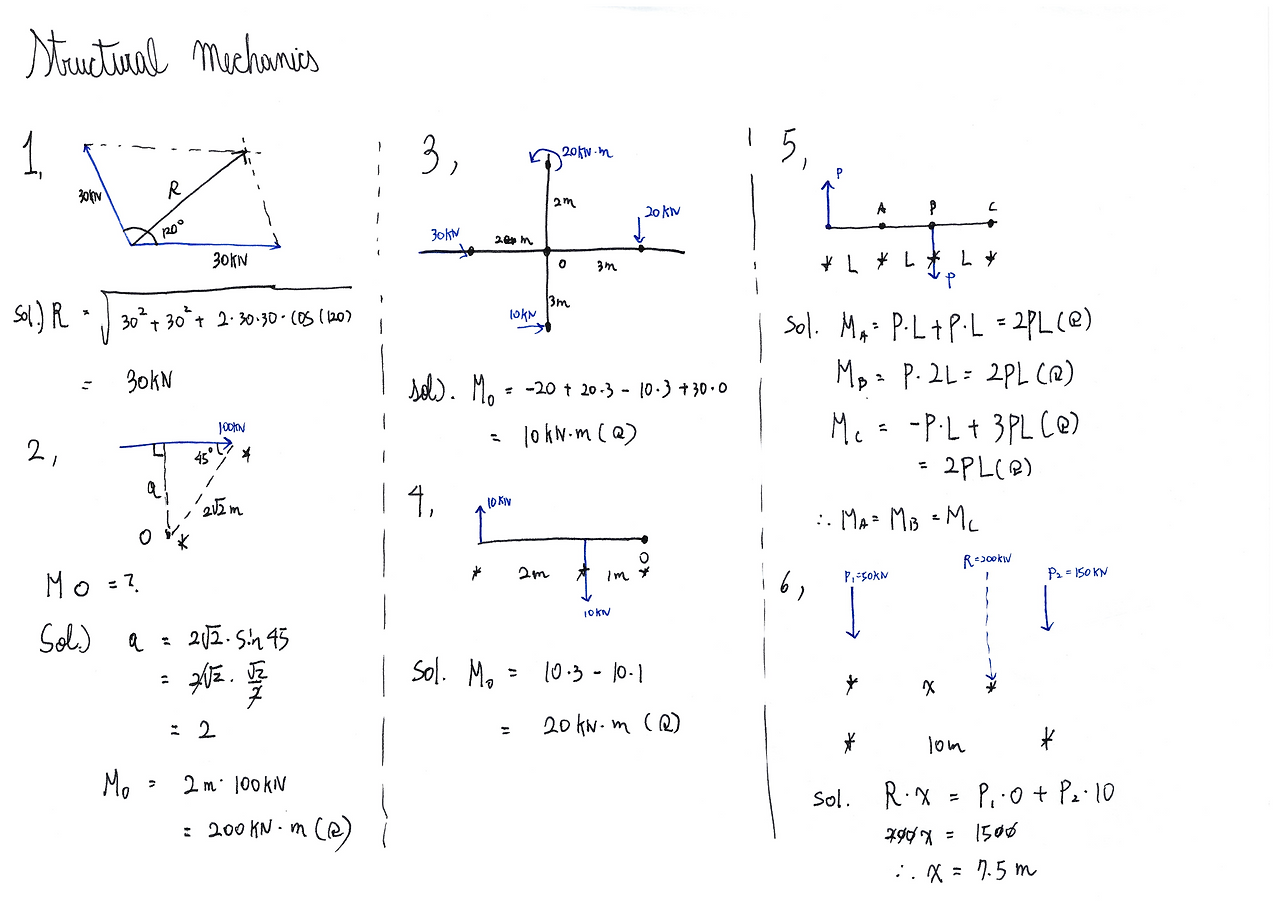 Structural Mechanics
1,
30kN
R
120°
30KN
Sol.) R = √30² + 30² + 2·30·30·cos(120)
= 30KN
2,
100kN
45°
a
2√2 m
O
M O = ?.
Sol.) a = 2√2 · Sin 45
= 2√2 · √2/2
= 2
M₀ = 2m · 100kN
= 200KN·m (R)
3,
20KN·m
2m
30KN
20KN
O
3m
3m
10KN
sol). M₀ = -20 + 20·3 - 10·3 + 30·0
= 10KN·m (R)
4,
10KN
O
2m
1m
10KN
Sol. M₀ = 10·3 - 10·1
= 20KN·m (R)
5,
P
A
B
C
L
L
L
P
Sol. M_A = P·L + P·L = 2PL (R)
M_B = P·2L = 2PL (R)
M_C = -P·L + 3PL (R)
= 2PL (R)
∴ M_A = M_B = M_C
6,
P₁=50KN
R=200KN
P₂=150KN
x
10m
Sol. R·x = P₁·0 + P₂·10
200x = 1500
∴ x = 7.5 m